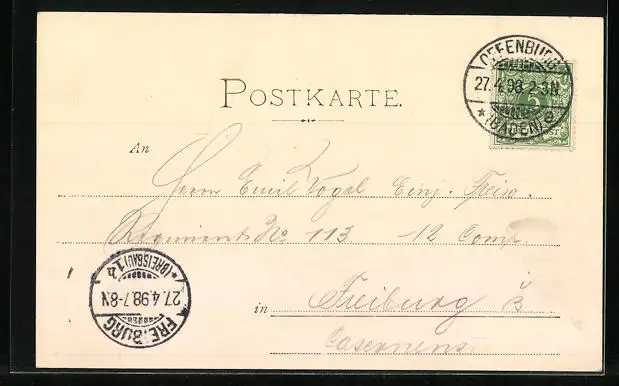 POSTKARTE.
OFFENBURG
27.4.98.2-3N.
* (BADEN) a *
5
An
Herrn Emil Vogel Einj. Freiw.
Regiment No 113 - 12 Comp.
in Freiburg i/B
Casernens
FREIBURG
27.4.98.7-8N
* (BREISGAU) 1